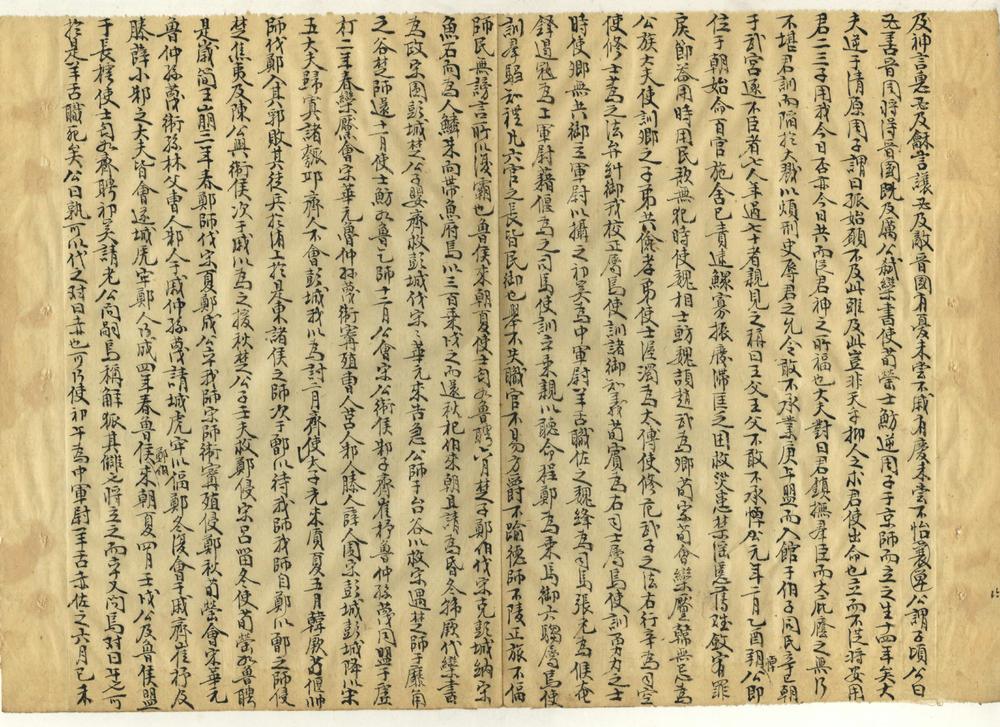 及神言惠必及龢言讓必及敵晉國有憂未甞不戚有慶未甞不怡襄單公謂子頃公曰
必善晉周將得晉國既及厲公弒欒書使荀罃士魴逆周子于京師而立之生十四年矣大
夫逆于清原周子謂曰孤始願不及此雖及此豈非天乎抑人之求君使出命也立而不從將安用
君二三子用我今日否亦今日共而從君神之所福也大夫對曰君鎮撫羣臣而大庇廕之無乃
不堪君訓而陷於大戮以煩刑史辱君之允令敢不承業庚午盟而入館于伯子同氏辛巳朝
于武宮逐不臣者七人年過七十者親見之稱曰王父王父不敢不承悼公元年二月乙酉朔公即
位于朝始命百官施舍已責逮鰥寡振廢滯匡乏困救災患禁淫慝薄賦斂宥罪
戾節器用時用民欲無犯時使魏相士魴魏頡趙武為卿荀家荀會欒黶韓無忌為
公族大夫使訓卿之子弟共儉孝弟使士渥濁為太傅使修范武子之法右行辛為司空
使修士蒍之法弁糾御戎校正屬焉使訓諸御知義荀賓為右司士屬焉使訓勇力之士
時使卿無共御立軍尉以攝之祁奚為中軍尉羊舌職佐之魏絳為司馬張老為候奄
鐸遏寇為上軍尉藉偃為之司馬使訓卒乘親以聽命程鄭為乘馬御六騶屬焉使
訓羣騶知禮凡六官之長皆民譽也舉不失職官不易方爵不踰德師不陵正旅不偪
師民無謗言所以復霸也魯侯來朝夏使士匄如魯聘六月楚子鄭伯伐宋克彭城納宋
魚石向為人鱗朱向帶魚府焉以三百乘戍之而還秋杞伯來朝且請為昏冬韓厥代欒書
為政宋圍彭城楚公子嬰齊救彭城伐宋宋華元來告急公師于台谷以救宋遇楚師于靡角
之谷楚師還十一月使士魴如魯乞師十二月公會宋公衛侯邾子齊崔杼魯仲孫蔑同盟于虛
朾二年春欒黶會宋華元魯仲孫蔑衛甯殖曹人莒人邾人滕人薛人圍宋彭城彭城降以宋
五大夫歸寘諸瓠邱齊人不會彭城我以為討二月齊使太子光來質夏五月韓厥荀偃帥
師伐鄭入其郛敗其徒兵於洧上於是東諸侯之師次于鄫以待我師我師自鄭以鄫之師侵
楚焦夷及陳公與衛侯次于戚以為之援秋楚公子壬夫救鄭侵宋呂留冬使荀罃如魯聘
是歲簡王崩三年春鄭師伐宋夏鄭成公卒我師宋師衛甯殖侵鄭秋荀罃會宋華元
魯仲孫蔑衛孫林父曹人邾人于戚仲孫蔑請城虎牢以偪鄭冬復會于戚齊崔杼及
滕薛小邾之大夫皆會遂城虎牢鄭人乃成四年春魯侯來朝夏四月壬戌公及魯侯盟
于長樗使士匄如齊聘祁奚請老公問嗣焉稱解狐其讎也將立之而卒又問焉對曰午也可
於是羊舌職死矣公曰孰可以代之對曰赤也可乃使祁午為中軍尉羊舌赤佐之六月己未